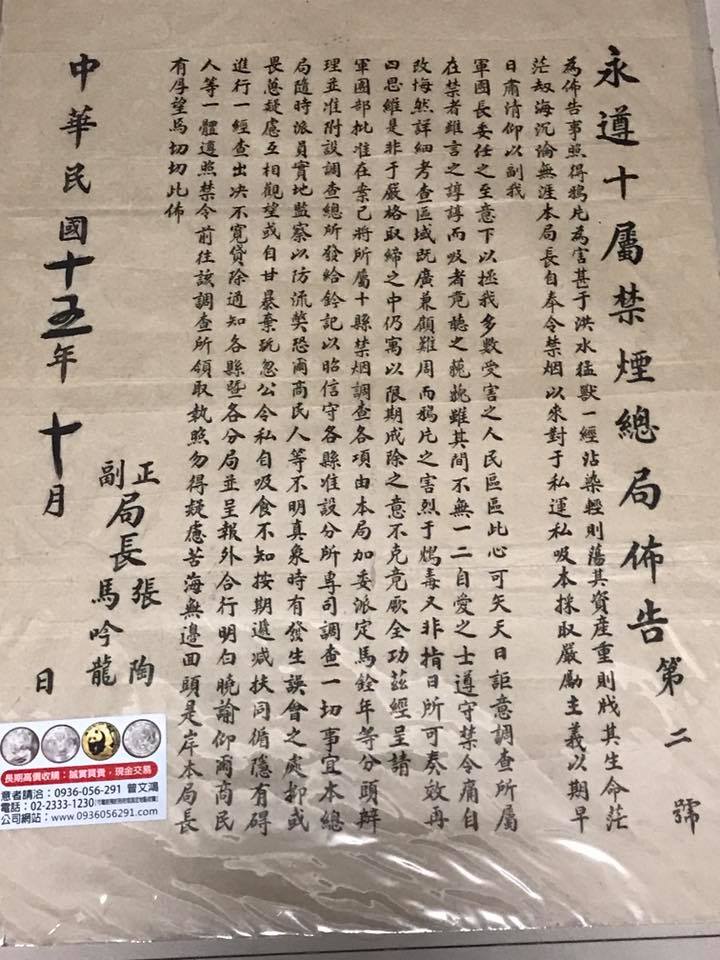 永遵十屬禁煙總局佈告 第二號
為佈告事照得鴉片為害甚于洪水猛獸一經沾染輕則蕩其資產重則戕其生命茫
茫刼海沉淪無涯本局長自奉令禁烟以來對于私運私吸本採取嚴勵主義以期早
日肅清仰以副我
軍團長委任之至意下以拯我多數受害之人民區區此心可矢天日詎意調查所屬
在禁者雖言之諄諄而吸者竟聽之藐藐雖其間不無一二自愛之士遵守禁令痛自
改悔然詳細考查區域既廣兼顧難周而鴉片之害烈于鴆毒又非指日所可奏效再
四思維是非于嚴格取締之中仍寓以限期戒除之意不克竟厥全功茲經呈請
軍團部批准在案已將所屬十縣禁烟調查各項由本局加委派定馬銓年等分頭辦
理並准附設調查總所發給鈐記以昭信守各縣准設分所專司調查一切事宜本總
局隨時派員實地監察以防流獘恐爾商民人等不明真象時有發生誤會之處抑或
畏葸疑慮互相觀望或自甘暴棄玩忽公令私自吸食不知按期遞減扶同循隱有碍
進行一經查出决不寬貸除通知各縣暨各分局並呈報外合行明白曉諭仰爾商民
人等一體遵照禁令前往該調查所領取執照勿得疑慮苦海無邊回頭是岸本局長
有厚望焉切切此佈
正副局長 張陶 馬吟龍
中華民國十五年十月 日
長期高價收購：誠實買賣，現金交易
意者請洽：0936-056-291 曾文鴻
電話：02-2333-1230
公司網站：www.0936056291.com